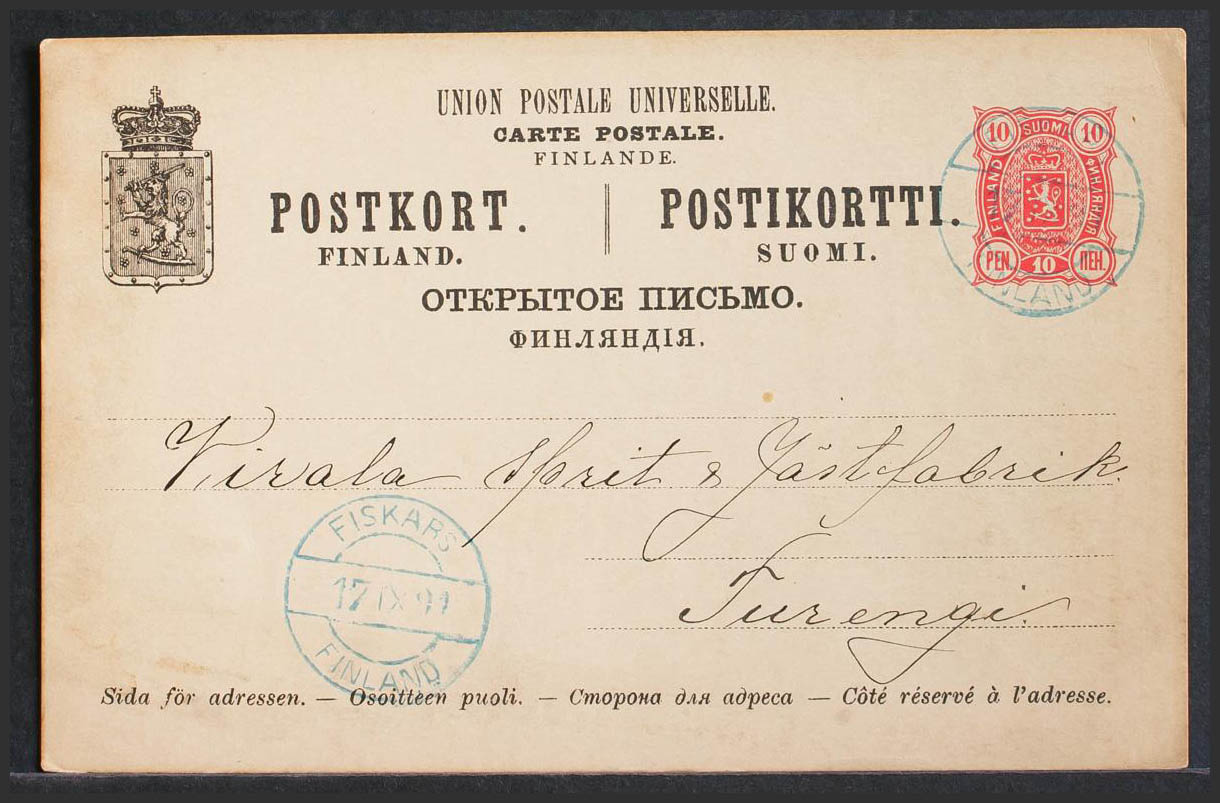 UNION POSTALE UNIVERSELLE.
CARTE POSTALE.
FINLANDE.
POSTKORT. POSTIKORTTI.
FINLAND. SUOMI.
ОТКРЫТОЕ ПИСЬМО.
ФИНЛЯНДІЯ.
10 SUOMI 10
FINLAND ФИНЛЯНДІЯ
PEN. 10 ПЕН.
NLAND
Virala Sprit & Jästfabrik.
Turengi.
FISKARS
17 IX 91
FINLAND
Sida för adressen. — Osoitteen puoli. — Сторона для адреса — Côté réservé à l'adresse.